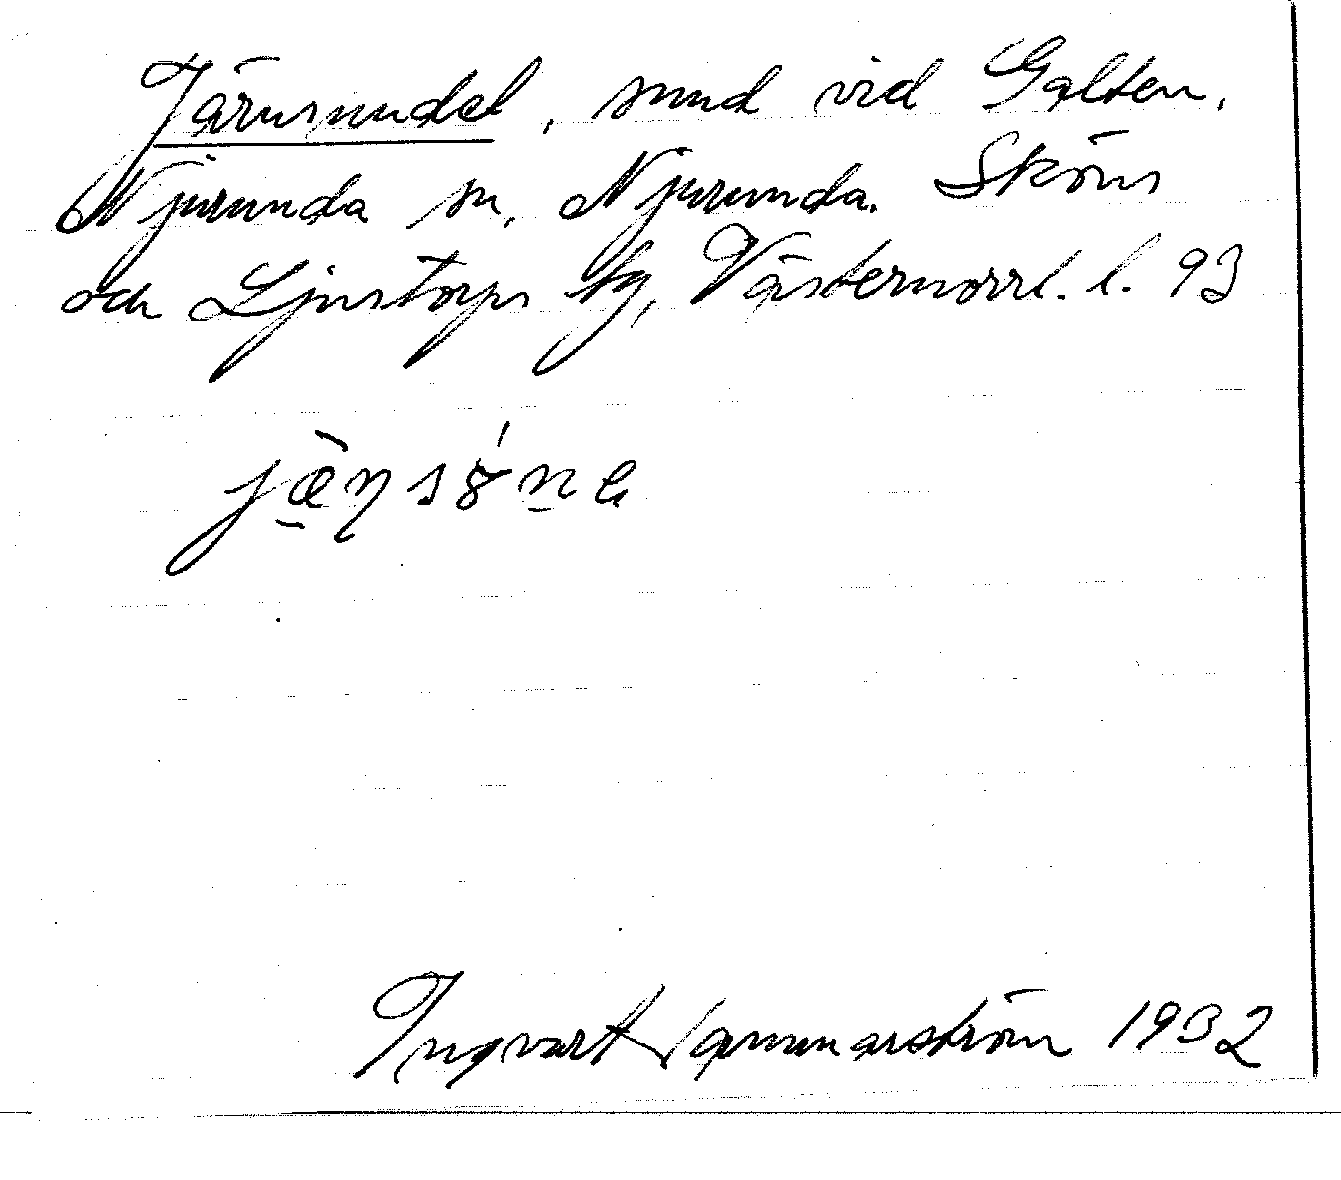 Järnsundet, sund vid Galten.
Njurunda sn. Njurunda. Sköns
och Ljustorps tg, Västernorrl. l. 93
Ingvart 1932